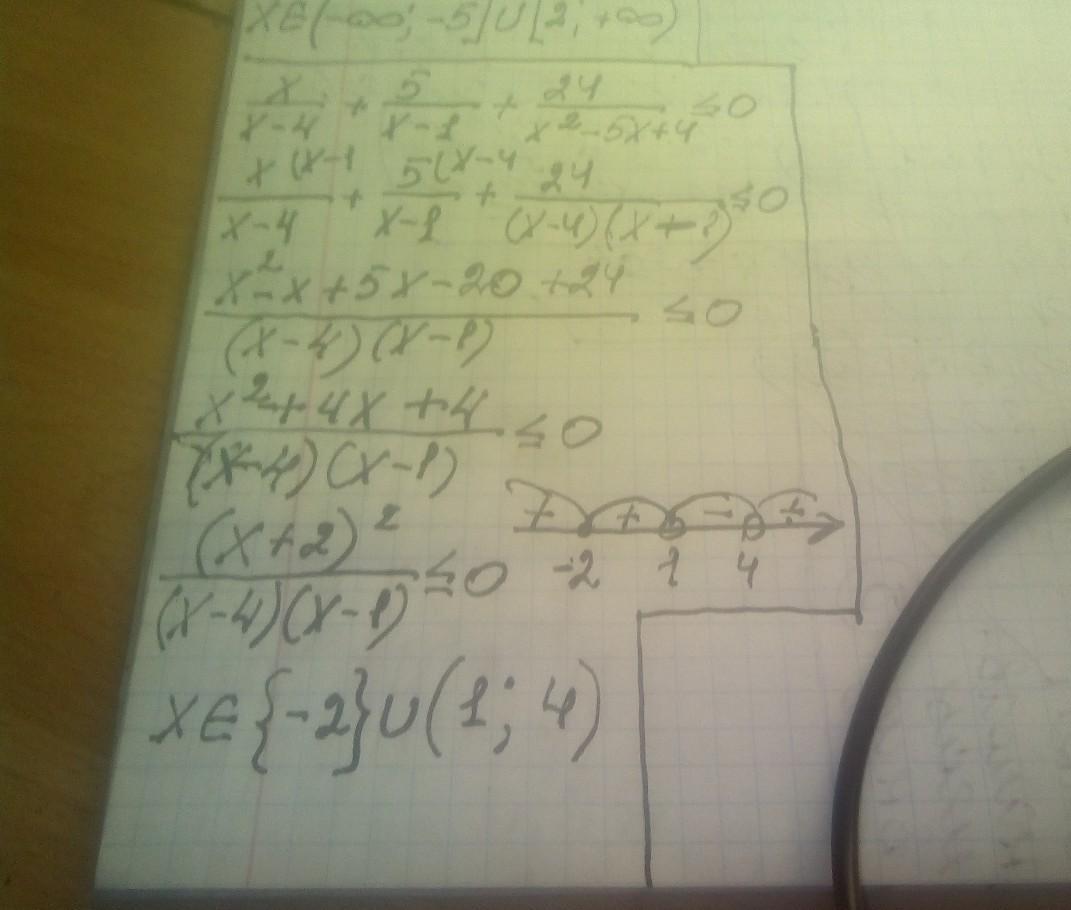 XЄ(-∞; -5]U[2; +∞)
x/(x-4) + 5/(x-1) + 24/(x²-5x+4) ≤0
x(x-1/(x-4) + 5(x-4/(x-1) + 24/((x-4)(x-1)) ≤0
(x²-x+5x-20+24)/((x-4)(x-1)) ≤0
(x²+4x+4)/((x-4)(x-1)) ≤0
+ + - +
(x+2)²/((x-4)(x-1)) ≤0
-2 1 4
XЄ{-2}U(1; 4)